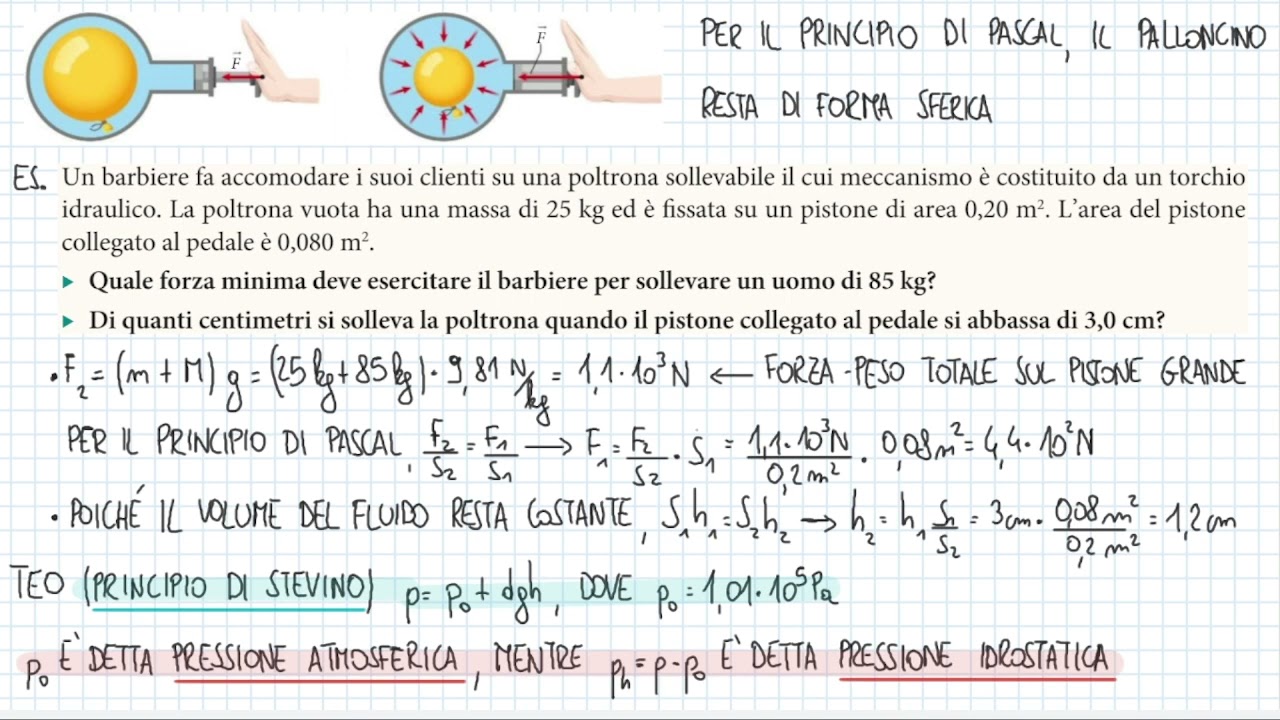 F⃗
F⃗
PER IL PRINCIPIO DI PASCAL, IL PALLONCINO
RESTA DI FORMA SFERICA
ES. Un barbiere fa accomodare i suoi clienti su una poltrona sollevabile il cui meccanismo è costituito da un torchio
idraulico. La poltrona vuota ha una massa di 25 kg ed è fissata su un pistone di area 0,20 m². L'area del pistone
collegato al pedale è 0,080 m².
▸ Quale forza minima deve esercitare il barbiere per sollevare un uomo di 85 kg?
▸ Di quanti centimetri si solleva la poltrona quando il pistone collegato al pedale si abbassa di 3,0 cm?
• F₂ = (m + M) g = (25 kg + 85 kg) · 9,81 N/kg = 1,1 · 10³ N ← FORZA-PESO TOTALE SUL PISTONE GRANDE
PER IL PRINCIPIO DI PASCAL, F₂/S₂ = F₁/S₁ → F₁ = F₂/S₂ · S₁ = 1,1 · 10³ N/0,2 m² · 0,08 m² = 4,4 · 10² N
• POICHÉ IL VOLUME DEL FLUIDO RESTA COSTANTE, S₁h₁ = S₂h₂ → h₂ = h₁ S₁/S₂ = 3 cm · 0,08 m²/0,2 m² = 1,2 cm
TEO (PRINCIPIO DI STEVINO) p = p₀ + dgh, DOVE p₀ = 1,01 · 10⁵ Pa
p₀ E' DETTA PRESSIONE ATMOSFERICA, MENTRE pₕ = p - p₀ E' DETTA PRESSIONE IDROSTATICA